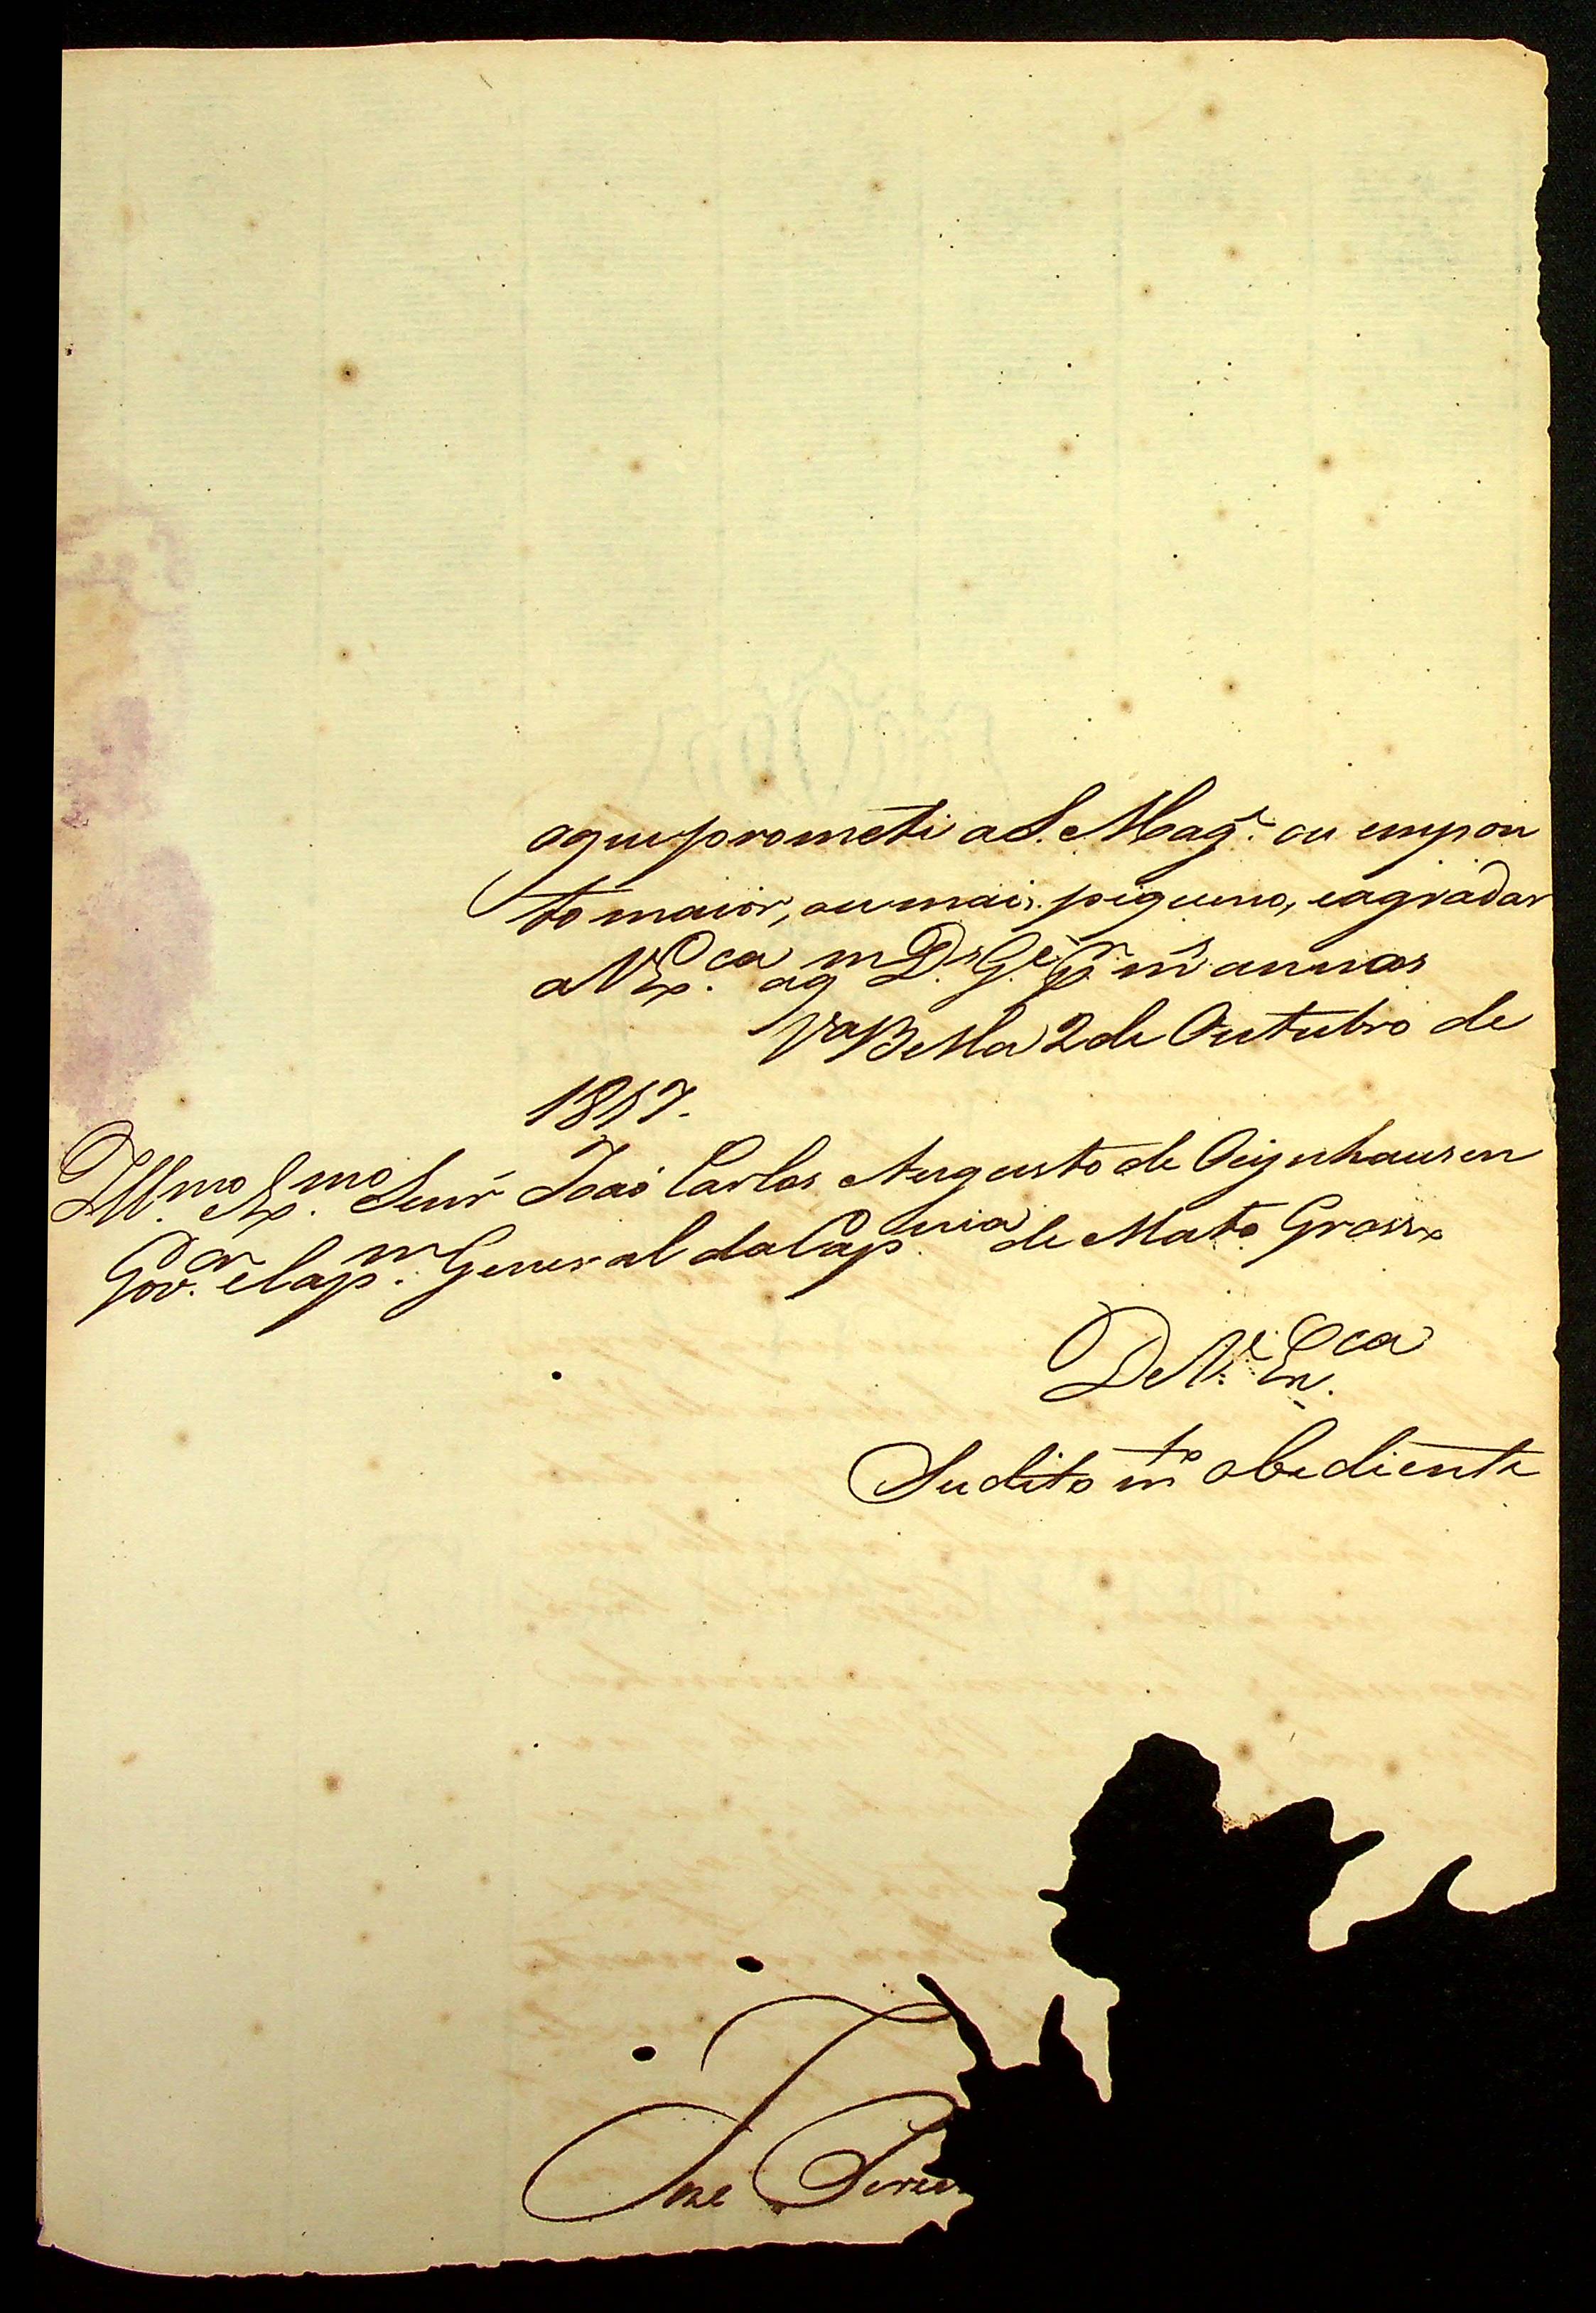 oque prometi a S. Mag.e ou empon
to maior, ou mais piqueno, eagradar
a V Ex.ca aq m D.s G.e p.r m.s annos
V.a Bella 2 de Outubro de
1817.
Ill.mo Ex.mo Senr João Carlos Augusto de Oeynhausen
Gov.or eCap.m General da Cap.nia de Mato Grosso
De V.e Ex.ca
Sudito m.to obediente
Joze Perei